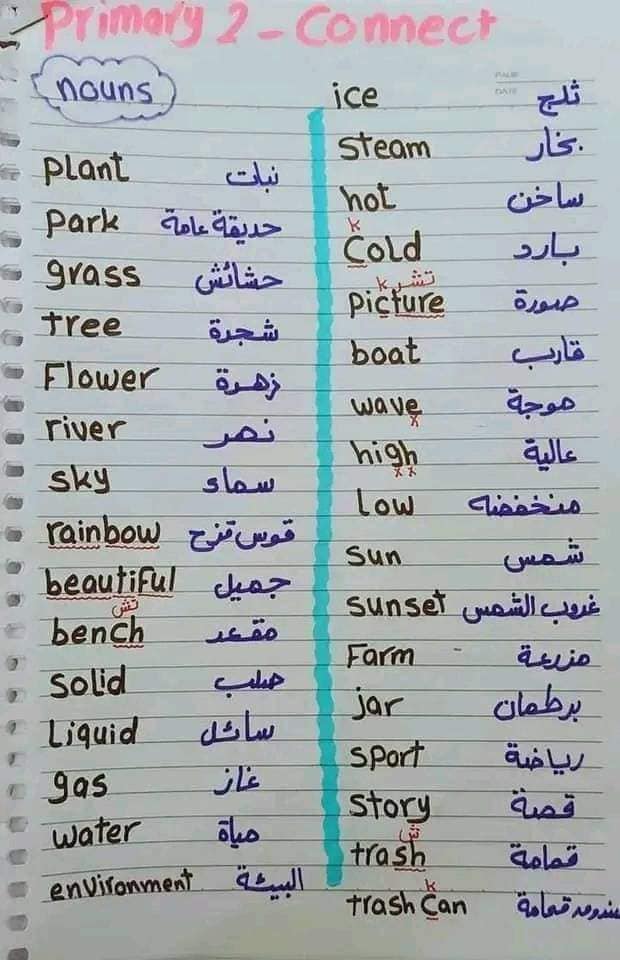 Primary 2 - Connect
nouns
PAGE
DATE
plant نبات
park حديقة عامة
grass حشائش
tree شجرة
Flower زهرة
river نهر
sky سماء
rainbow قوس قزح
beautiful جميل
تش
bench مقعد
solid صلب
Liquid سائل
gas غاز
water مياة
environment البيئة
ice ثلج
steam بخار
hot ساخن
k
Cold بارد
k تشر
picture صورة
boat قارب
wave موجة
x
high عالية
x x
Low منخفضه
sun شمس
sunset غروب الشمس
Farm مزرعة
jar برطمان
sport رياضة
story قصة
ش
trash قمامة
k
trash Can قمامة